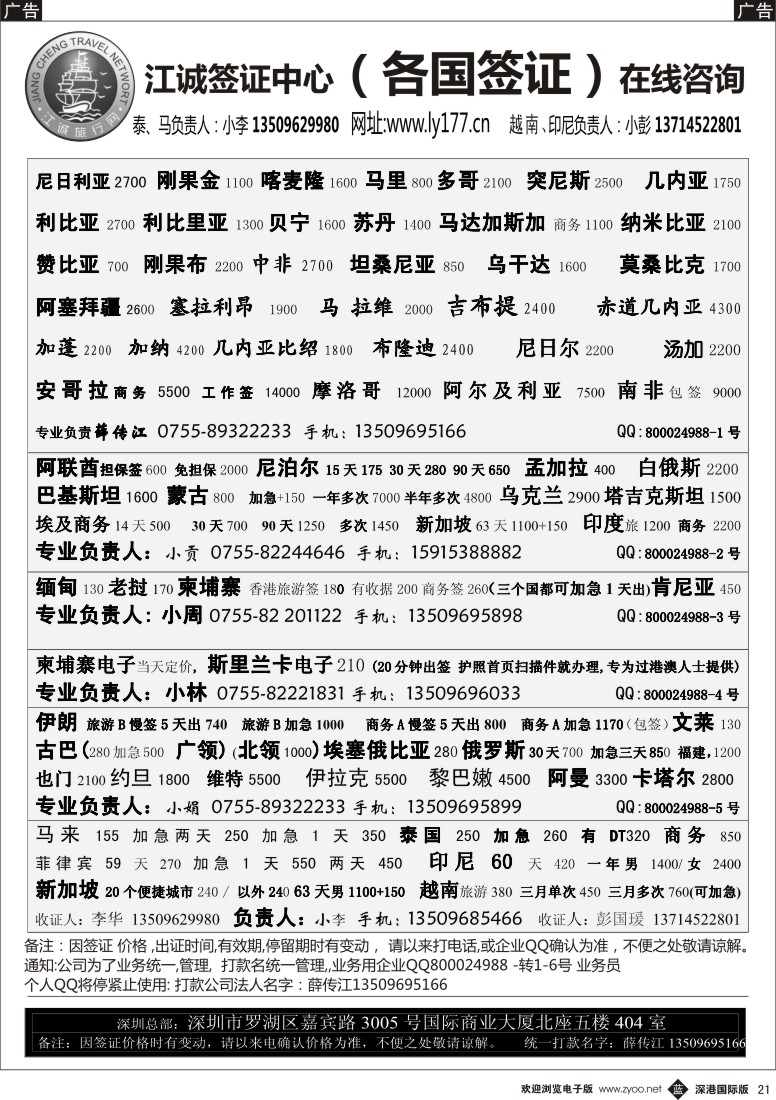 广告 广告
JIANG CHENG TRAVEL NETWORK
江诚旅行网
江诚签证中心(各国签证)在线咨询
泰、马负责人:小李 13509629980 网址:www.ly177.cn 越南、印尼负责人:小彭 13714522801
尼日利亚 2700 刚果金 1100 喀麦隆 1600 马里 800 多哥 2100 突尼斯 2500 几内亚 1750
利比亚 2700 利比里亚 1300 贝宁 1600 苏丹 1400 马达加斯加 商务 1100 纳米比亚 2100
赞比亚 700 刚果布 2200 中非 2700 坦桑尼亚 850 乌干达 1600 莫桑比克 1700
阿塞拜疆 2600 塞拉利昂 1900 马 拉维 2000 吉布提 2400 赤道几内亚 4300
加蓬 2200 加纳 4200 几内亚比绍 1800 布隆迪 2400 尼日尔 2200 汤加 2200
安哥拉 商务 5500 工作签 14000 摩洛哥 12000 阿尔及利亚 7500 南非 包签 9000
专业负责 薛传江 0755-89322233 手机: 13509695166 QQ:800024988-1 号
阿联酋担保签 600 免担保 2000 尼泊尔 15 天 175 30 天 280 90 天 650 孟加拉 400 白俄斯 2200
巴基斯坦 1600 蒙古 800 加急+150 一年多次 7000 半年多次 4800 乌克兰 2900 塔吉克斯坦 1500
埃及商务 14 天 500 30 天 700 90 天 1250 多次 1450 新加坡 63 天 1100+150 印度旅 1200 商务 2200
专业负责人: 小贡 0755-82244646 手机: 15915388882 QQ:800024988-2 号
缅甸 130 老挝 170 柬埔寨 香港旅游签 180 有收据 200 商务签 260(三个国都可加急 1 天出)肯尼亚 450
专业负责人: 小周 0755-82 201122 手机: 13509695898 QQ:800024988-3 号
柬埔寨电子当天定价, 斯里兰卡电子 210 (20 分钟出签 护照首页扫描件就办理,专为过港澳人士提供)
专业负责人: 小林 0755-82221831 手机: 13509696033 QQ:800024988-4 号
伊朗 旅游 B 慢签 5 天出 740 旅游 B 加急 1000 商务 A 慢签 5 天出 800 商务 A 加急 1170(包签)文莱 130
古巴(280 加急 500 广领)(北领 1000)埃塞俄比亚 280 俄罗斯 30 天 700 加急三天 850 福建,1200
也门 2100 约旦 1800 维特 5500 伊拉克 5500 黎巴嫩 4500 阿曼 3300 卡塔尔 2800
专业负责人: 小娟 0755-89322233 手机: 13509695899 QQ:800024988-5 号
马来 155 加急两天 250 加急 1 天 350 泰国 250 加急 260 有 DT320 商务 850
菲律宾 59 天 270 加急 1 天 550 两天 450 印尼 60 天 420 一年男 1400/ 女 2400
新加坡 20 个便捷城市 240 / 以外 240 63 天男 1100+150 越南旅游 380 三月单次 450 三月多次 760(可加急)
收证人: 李华 13509629980 负责人: 小李 手机: 13509685466 收证人: 彭国瑗 13714522801
备注:因签证 价格 ,出证时间,有效期,停留期时有变动 ,请以来打电话,或企业QQ确认为准,不便之处敬请谅解。
通知:公司为了业务统一,管理, 打款名统一管理,,业务用企业QQ800024988 -转1-6号 业务员
个人QQ将停紧止使用: 打款公司法人名字:薛传江13509695166
深圳总部: 深圳市罗湖区嘉宾路 3005 号国际商业大厦北座五楼 404 室
备注: 因签证价格时有变动,请以来电确认价格为准,不便之处敬请谅解。 统一打款名字: 薛传江 13509695166
欢迎浏览电子版 www.zyoo.net 蓝 深港国际版 21